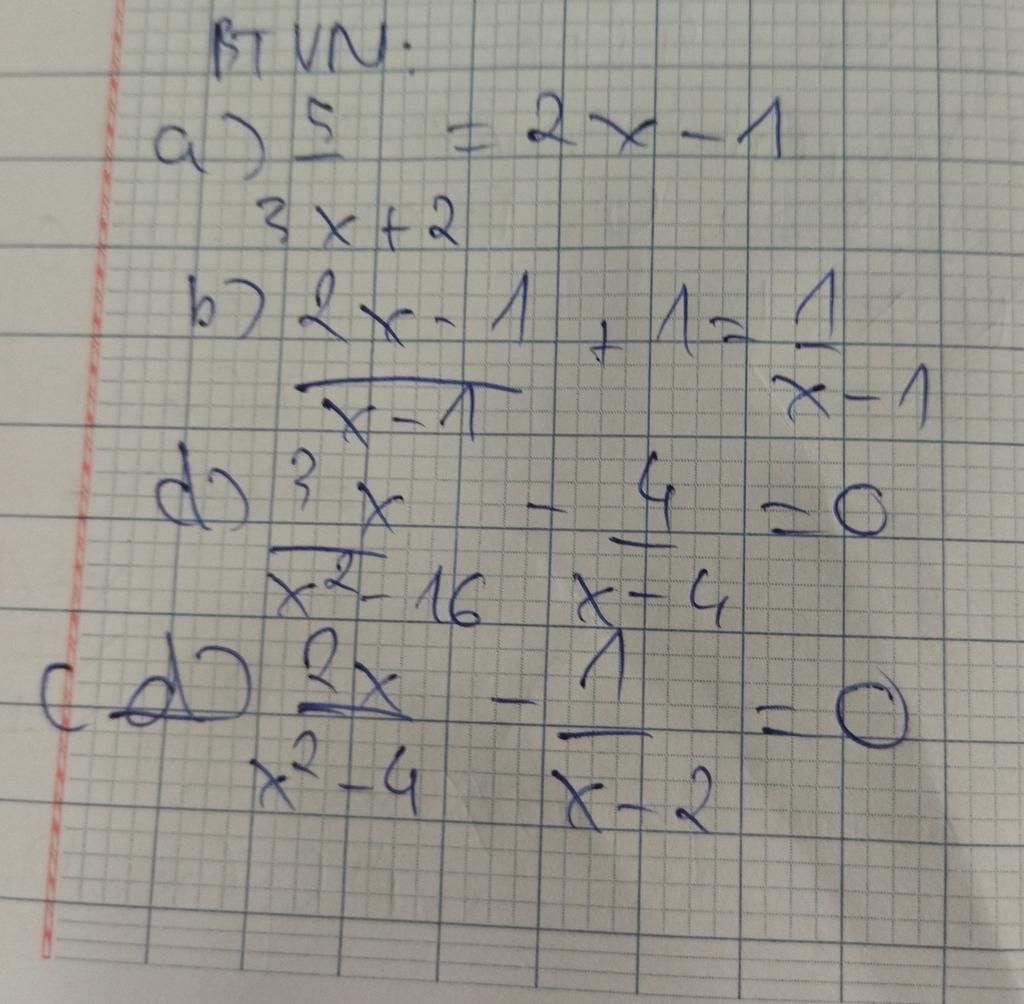 BTVN:
a) 5/(3x+2) = 2x-1
b) (2x-1)/(x-1) + 1 = 1/(x-1)
d) 3x/(x²-16) - 4/(x-4) = 0
c d) 2x/(x²-4) - 1/(x-2) = 0